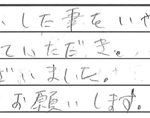 いした事をいや
ていただき、
ざいました。
お願いします。